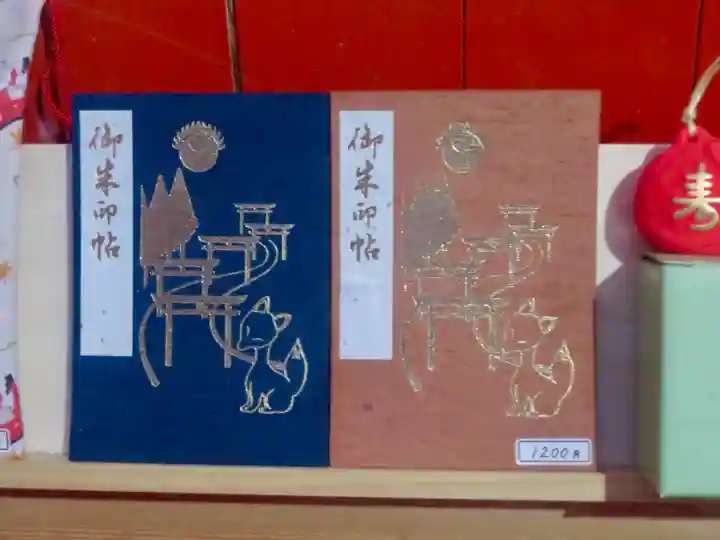 御朱印帖
御朱印帖
寿
1200円